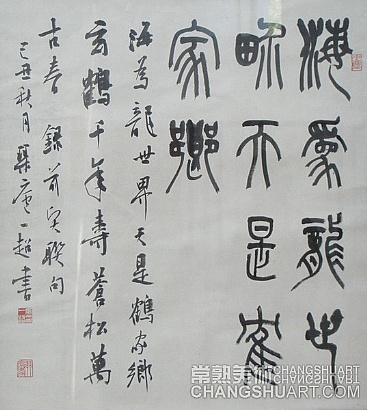 海為龍世
界天是鶴
家鄉
海為龍世界天是鶴家鄉
玄鶴千年壽蒼松萬
古春 錄前賢聯句
己丑秋月 一超書
常熟美术 CHANGSHUART
CHANGSHUART.COM